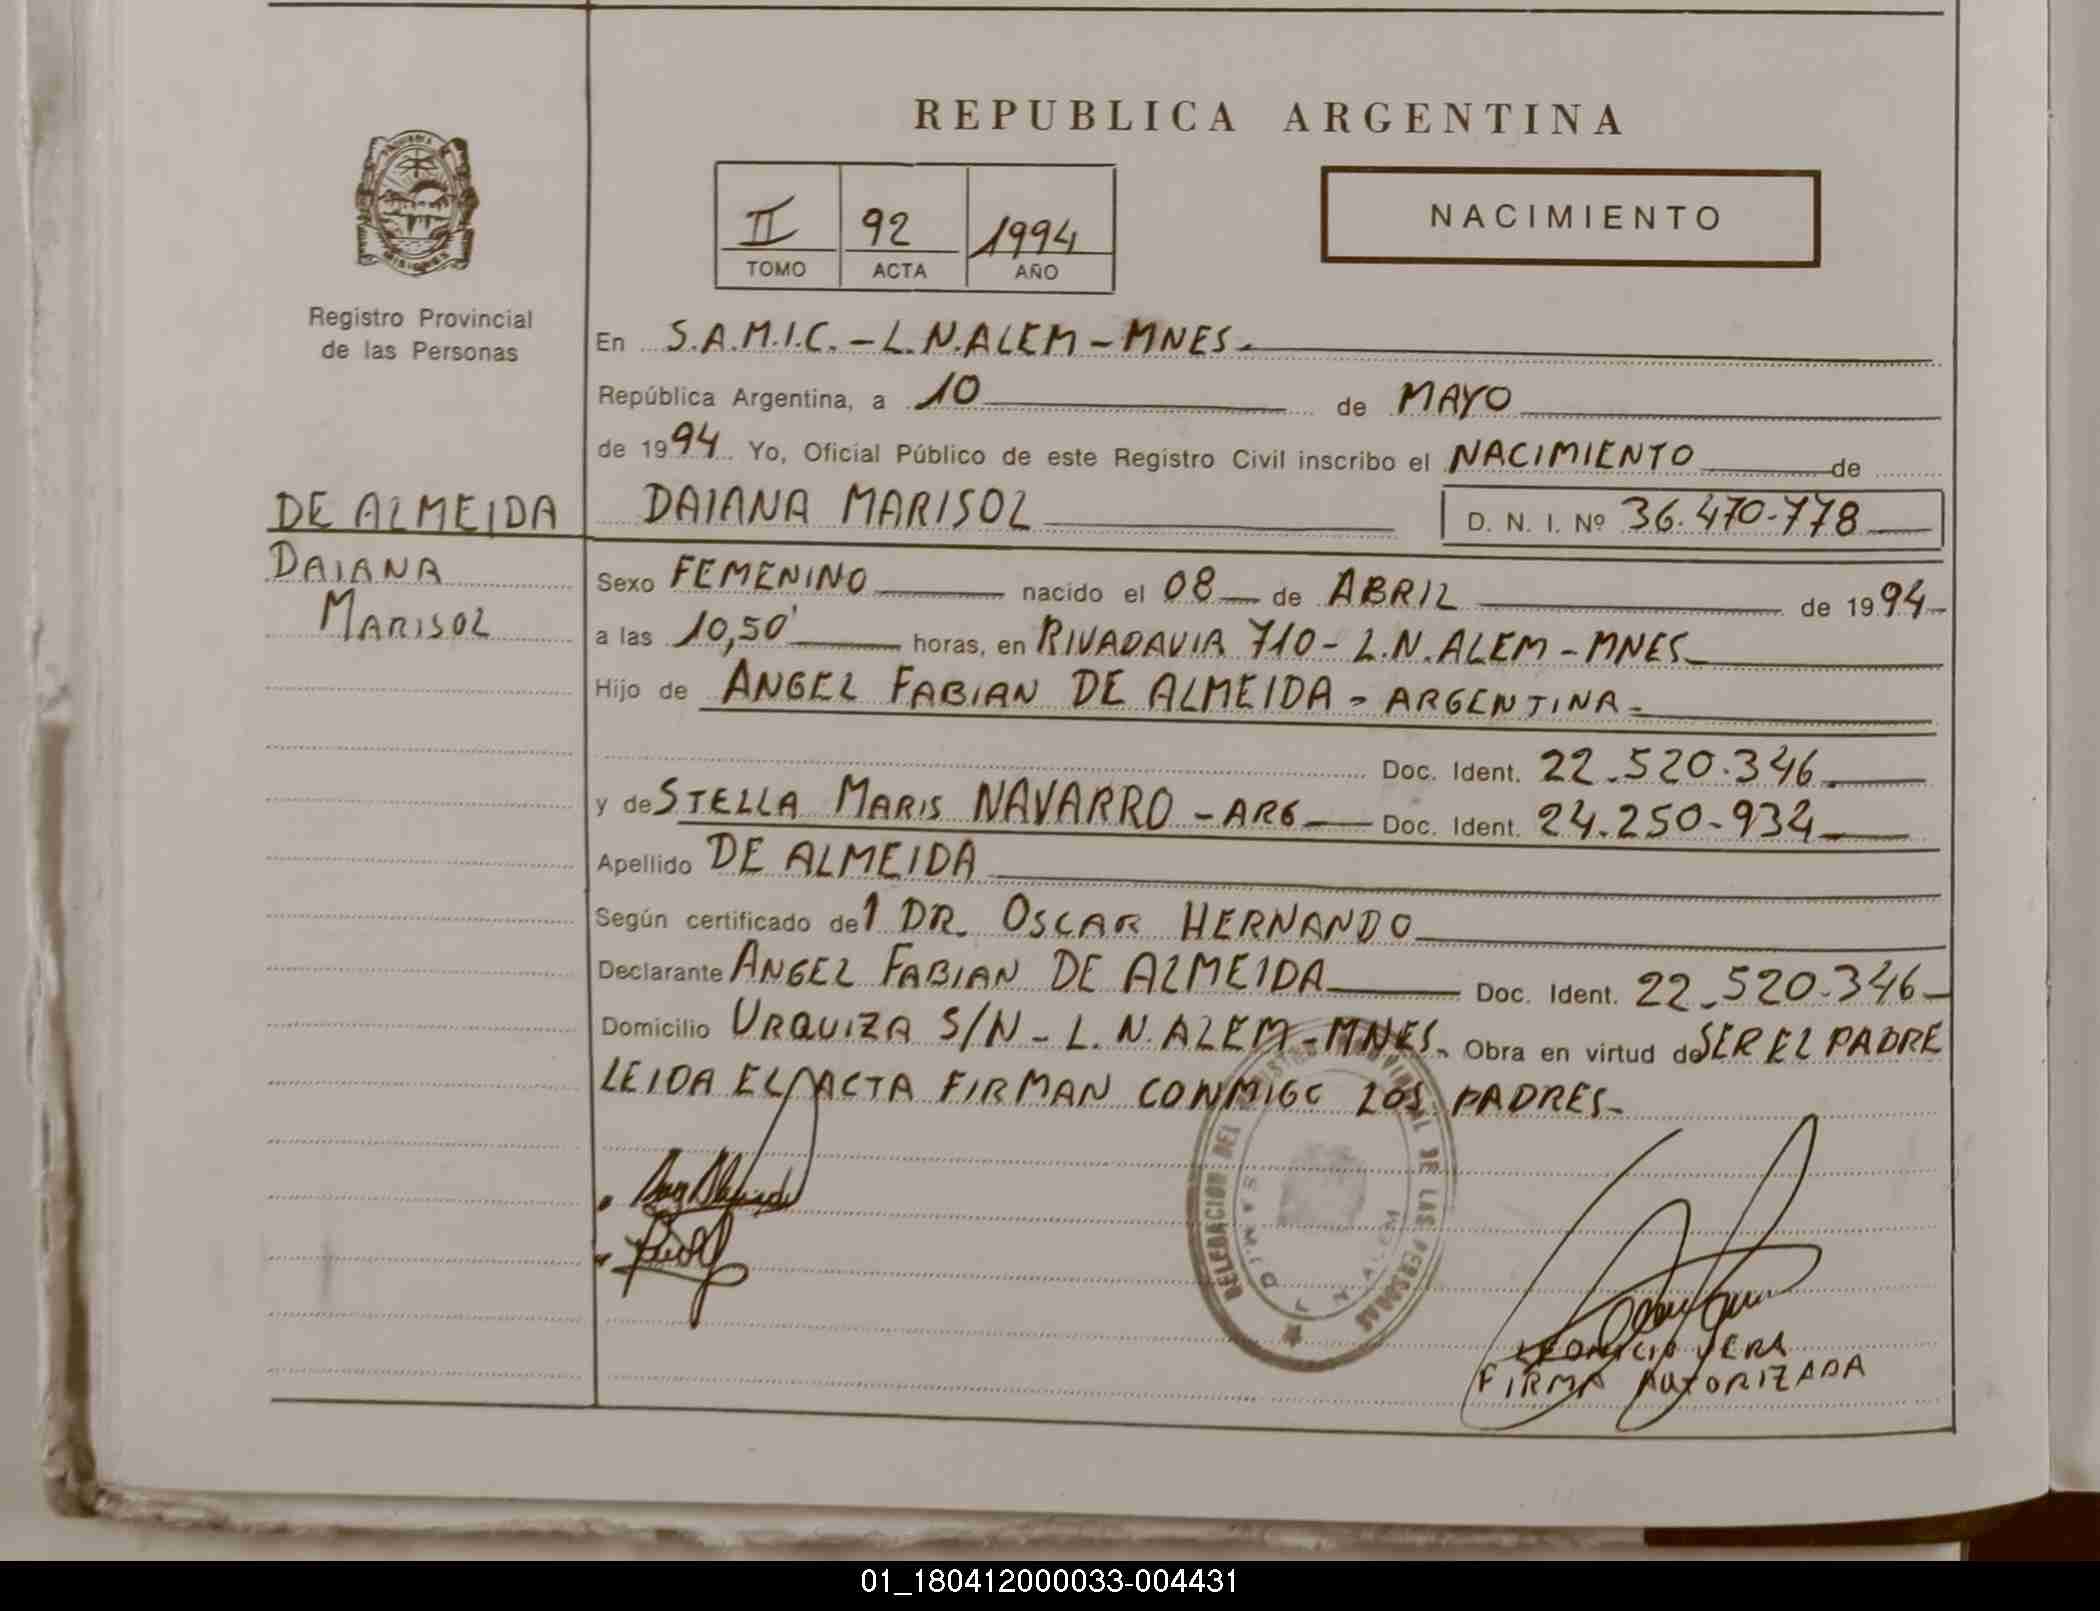 REPUBLICA ARGENTINA
II 92 1994
TOMO ACTA AÑO
NACIMIENTO
Registro Provincial
de las Personas
En S.A.M.I.C. - L.N.ALEM - MNES.
República Argentina, a 10 de MAYO
de 1994 Yo, Oficial Público de este Registro Civil inscribo el NACIMIENTO de
DE ALMEIDA DAIANA MARISOL D. N. I. Nº 36.470.778
DAIANA
MARISOL
Sexo FEMENINO nacido el 08 de ABRIL de 1994
a las 10,50' horas, en RIVADAVIA 710 - L.N.ALEM - MNES
Hijo de ANGEL FABIAN DE ALMEIDA - ARGENTINA -
Doc. Ident. 22.520.346
y de STELLA MARIS NAVARRO - ARG Doc. Ident. 24.250.934
Apellido DE ALMEIDA
Según certificado del DR. OSCAR HERNANDO
Declarante ANGEL FABIAN DE ALMEIDA Doc. Ident. 22.520.346
Domicilio URQUIZA S/N - L.N.ALEM - MNES. Obra en virtud de SER EL PADRE
LEIDA EL ACTA FIRMAN CONMIGO LOS PADRES -
DELEGACION DEL REGISTRO PROVINCIAL DE LAS PERSONAS
L N ALEM
LEONICIO VERA
FIRMA AUTORIZADA
01_180412000033-004431